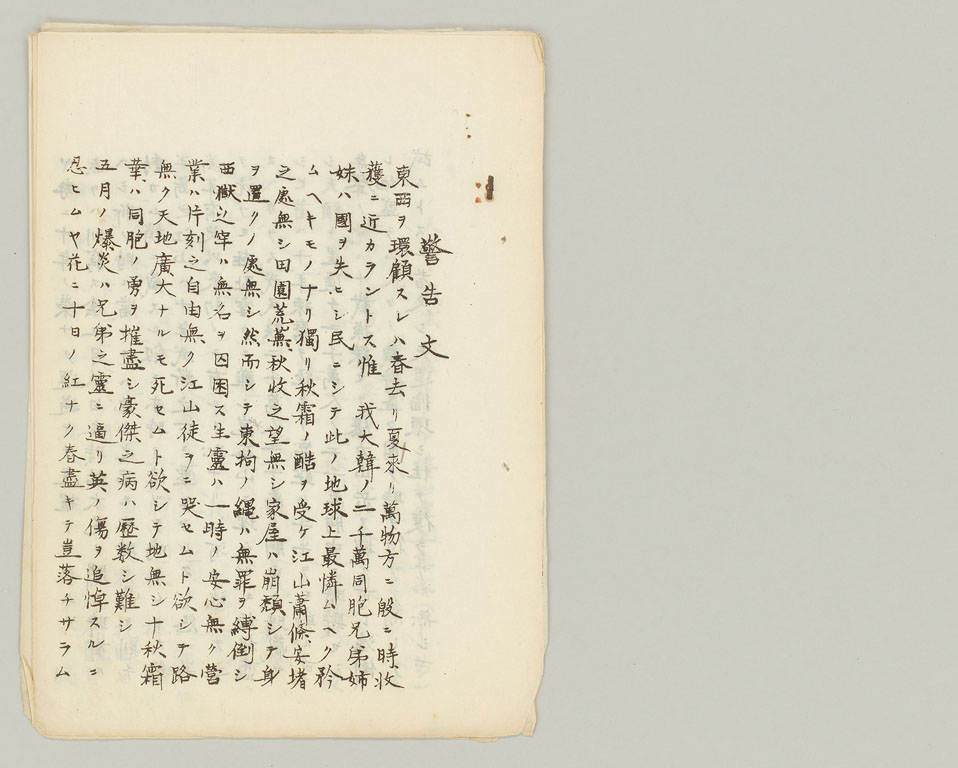 警告文
東西ヲ環顧スレハ春去リ夏来リ萬物方ニ殷ニ時収
穫ニ近カラントス惟 我大韓ノ二千萬同胞兄弟姉
妹ハ國ヲ失ヒシ民ニシテ此ノ地球上最憐ムヘク矜
ムヘキモノナリ獨リ秋霜ノ酷ヲ受ケ江山蕭條安堵
之處無シ田園荒蕪秋收之望無シ家屋ハ崩頽シテ身
ヲ置クノ處無シ然而シテ東拘ノ縄ハ無罪ヲ縛倒シ
西獄之牢ハ無名ヲ囚困ス生靈ハ一時ノ安心無ク營
業ハ片刻之自由無ク江山徒ヲニ哭セムト欲シテ路
無ク天地廣大ナルモ死セムト欲シテ地無シ十秋霜
華ハ同胞ノ勇ヲ摧盡シ豪傑之病ハ歴数シ難シ
五月ノ爆炎ハ兄弟之靈ニ逼リ英ノ傷ヲ追悼スルニ
忍ヒムヤ花ニ十日ノ紅ナク春盡キテ豈落チサラム